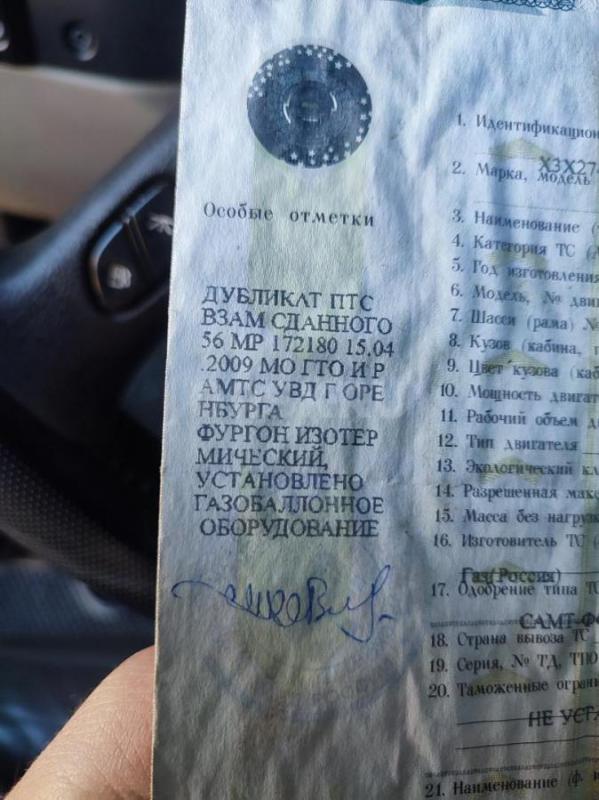 Особые отметки
ДУБЛИКАТ ПТС
ВЗАМ СДАННОГО
56 МР 172180 15.04
.2009 МО ГТО И Р
АМТС УВД Г ОРЕ
НБУРГА
ФУРГОН ИЗОТЕР
МИЧЕСКИЙ,
УСТАНОВЛЕНО
ГАЗОБАЛЛОННОЕ
ОБОРУДОВАНИЕ
1. Идентификацион
X3X27
2. Марка, модель
3. Наименование (
4. Категория ТС (
5. Год изготовления
6. Модель, № дви
7. Шасси (рама) №
8. Кузов (кабина,
9. Цвет кузова (каб
10. Мощность двигат
11. Рабочий объем д
12. Тип двигателя
13. Экологический кл
14. Разрешенная мак
15. Масса без нагруз
16. Изготовитель ТС (
Газ(Россия)
17. Одобрение типа ТС
САМТ-Ф
18. Страна вывоза ТС
19. Серия, № ТД, ТПО
20. Таможенные огран
НЕ УСТА
21. Наименование (ф.